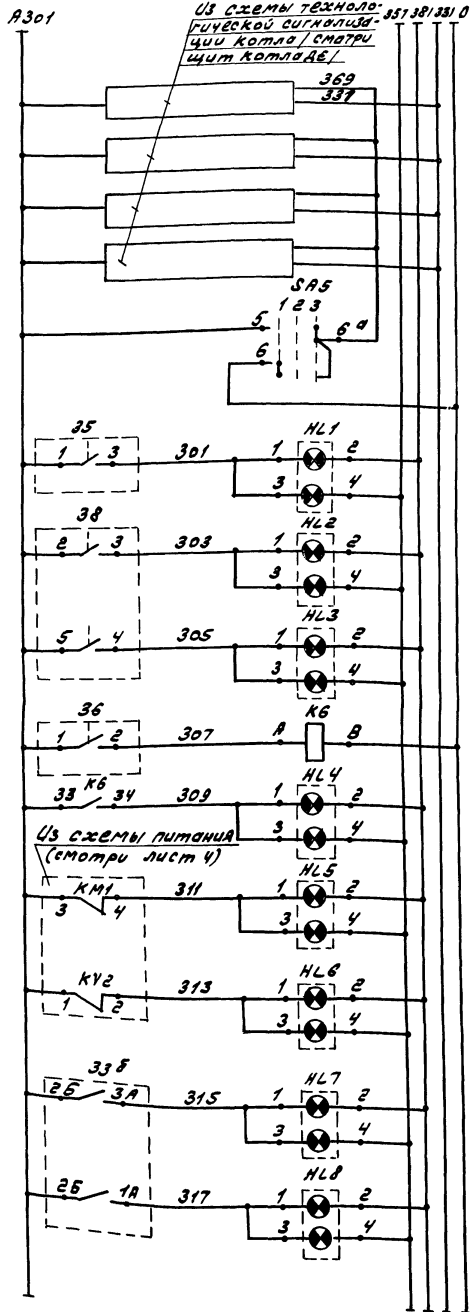 А301
Из схемы техноло-
гической сигнализа-
ции котла /смотри
щит котла ДЕ/
357 381 331 0
369
331
SA5
1 2 3
5
6 а
6
35
1 3 301
HL1
1 2
3 4
38
2 3 303
HL2
1 2
3 4
5 4 305
HL3
1 2
3 4
36
1 2 307
К6
А В
К6
33 34 309
HL4
1 2
3 4
Из схемы питания
(смотри лист 4)
КМ1
3 4 311
HL5
1 2
3 4
KV2
1 2 313
HL6
1 2
3 4
33б
2Б 3А 315
HL7
1 2
3 4
2Б 1А 317
HL8
1 2
3 4